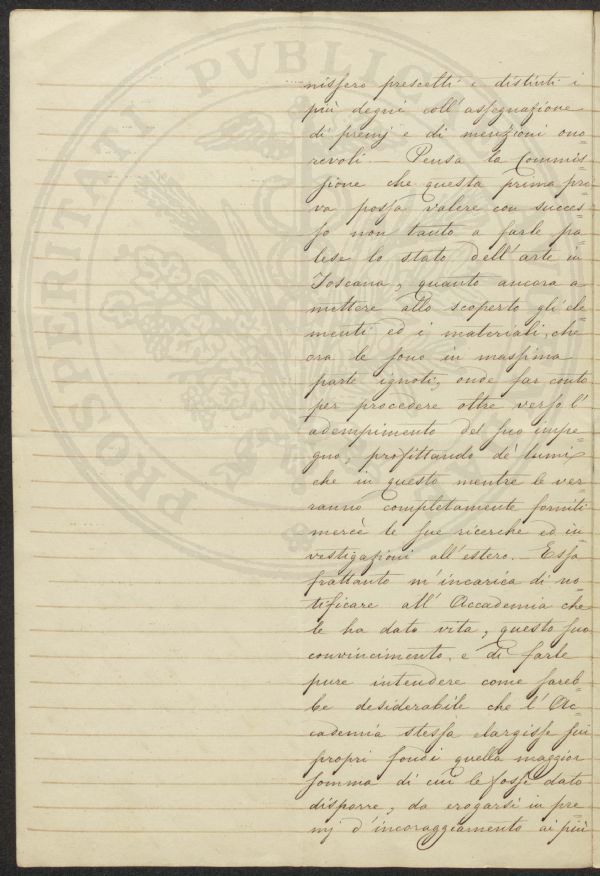 nissero prescelti e distinti i
più degni coll' assegnazione
di premj e di menzioni ono=
revoli. Pensa la Commis=
sione che questa prima pro=
va possa valere con succes=
so non tanto a farle pa=
lese lo stato dell' arte in
Toscana, quanto ancora a
mettere allo scoperto gli ele=
menti ed i materiali, che
ora le sono in massima
parte ignoti, onde far conto
per procedere oltre verso l'
adempimento del suo impe=
gno, profittando de' lumi
che in questo mentre le ver=
ranno completamente forniti
mercè le sue ricerche ed in=
vestigazioni all' estero. Essa
frattanto m' incarica di no=
tificare all' Accademia che
le ha dato vita, questo suo
convincimento, e di farle
pure intendere come sareb=
be desiderabile che l' Ac=
cademia stessa elargisse sui
propri fondi quella maggior
somma di cui le fosse dato
disporre, da erogarsi in pre=
mj d' incoraggiamento ai più
PROSPERITATI PVBLICAE